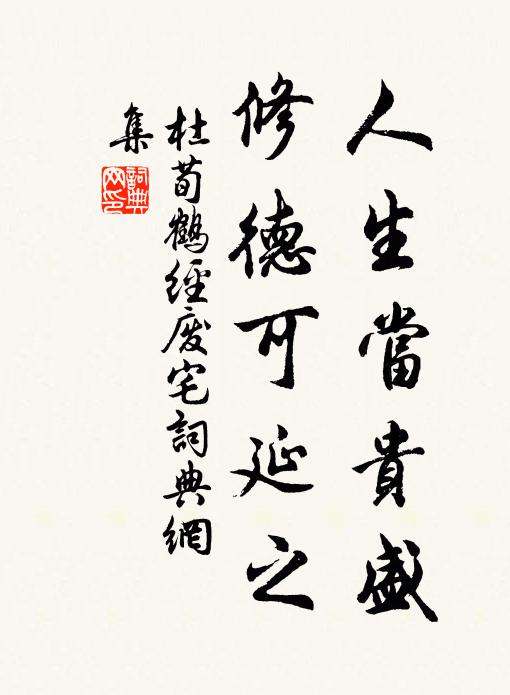 人生當貴盛
修德可延之
杜荀鶴經廢宅詞典網
集
詞典
网印